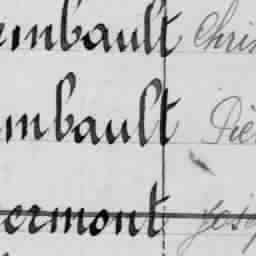 embault Chris
mbault Pie
ermont Jos